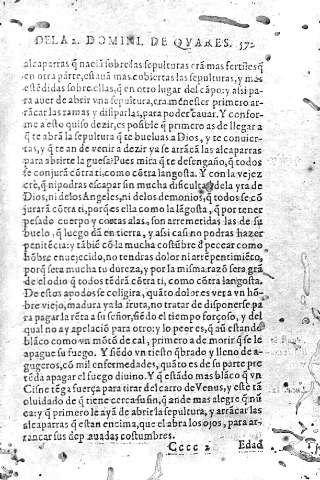 DE LA 2. DOMINI. DE QVARES. 572
alcaparras q̃ naciã sobre las sepulturas erã mas fertiles q̃
en otra parte, estauã mas cubiertas las sepulturas, y mas
estẽdidas sobre ellas, q̃ en otro lugar del cãpo: y assi pa-
ra auer de abrir vna sepultura, era menester primero ar-
rãcar las ramas y disiparlas, para poder cauar. Y confor-
me a esto quiso dezir, es posible q̃ primero as de llegar a
q̃ te abrã la sepultura q̃ te bueluas a Dios, y te conuier-
tas, y q̃ te an de venir a dezir ya se arrãcã las alcaparras
para abrirte la guesa? Pues mira q̃ te desengaño, q̃ todos
se conjurã cõtra ti, como cõtra langosta. Y con la vejez
cree, q̃ ni podras escapar sin mucha dificultad de la yra de
Dios, ni de los Angeles, ni de los demonios, q̃ todos se cõ
jurarã cõtra ti, porq̃ es ella como la lãgosta, q̃ por tener
pesado cuerpo y cortas alas, son arremetidas las de su
buelo, q̃ luego dã en tierra, y assi casi no podras hazer
penitẽcia: y tãbiẽ cõ la mucha costũbre d̃ pecear como
hõbre enuejecido, no tendras dolor ni arrepentimiẽto,
porq̃ sera mucha tu dureza, y por la misma razõ sera grã
de el odio q̃ todos tẽdrã cõtra ti, como cõtra langosta.
De estas apodas se coligira, quãto dolor es ver a vn hõ-
bre viejo, madura ya la fruta, no tratar de disponerse pa
ra pagar la rẽta a su señor, siẽdo el tiempo forçoso, y del
qual no ay apelaciõ para otro: y lo peor es, q̃ aũ estando
blãco como vn mõtõ de cal, primero a de morir q̃ se le
apague su fuego. Y siẽdo vn tiesto q̃brado y lleno de a-
gugeros, cõ mil enfermedades, quãto es de su parte pre
tẽda apagar el fuego diuino. Y q̃ estãdo mas blãco q̃ vn
Cisne tẽga fuerça para tirar del carro de Venus, y este tã
oluidado de q̃ tiene cerca su fin, q̃ ande mas alegre q̃ nũ
ca: y q̃ primero le ayã de abrir la sepultura, y arrãcar las
alcaparras q̃ estan encima, que el abra los ojos, para ar-
rancar sus deprauadas costumbres.
Cccc 2 Edad